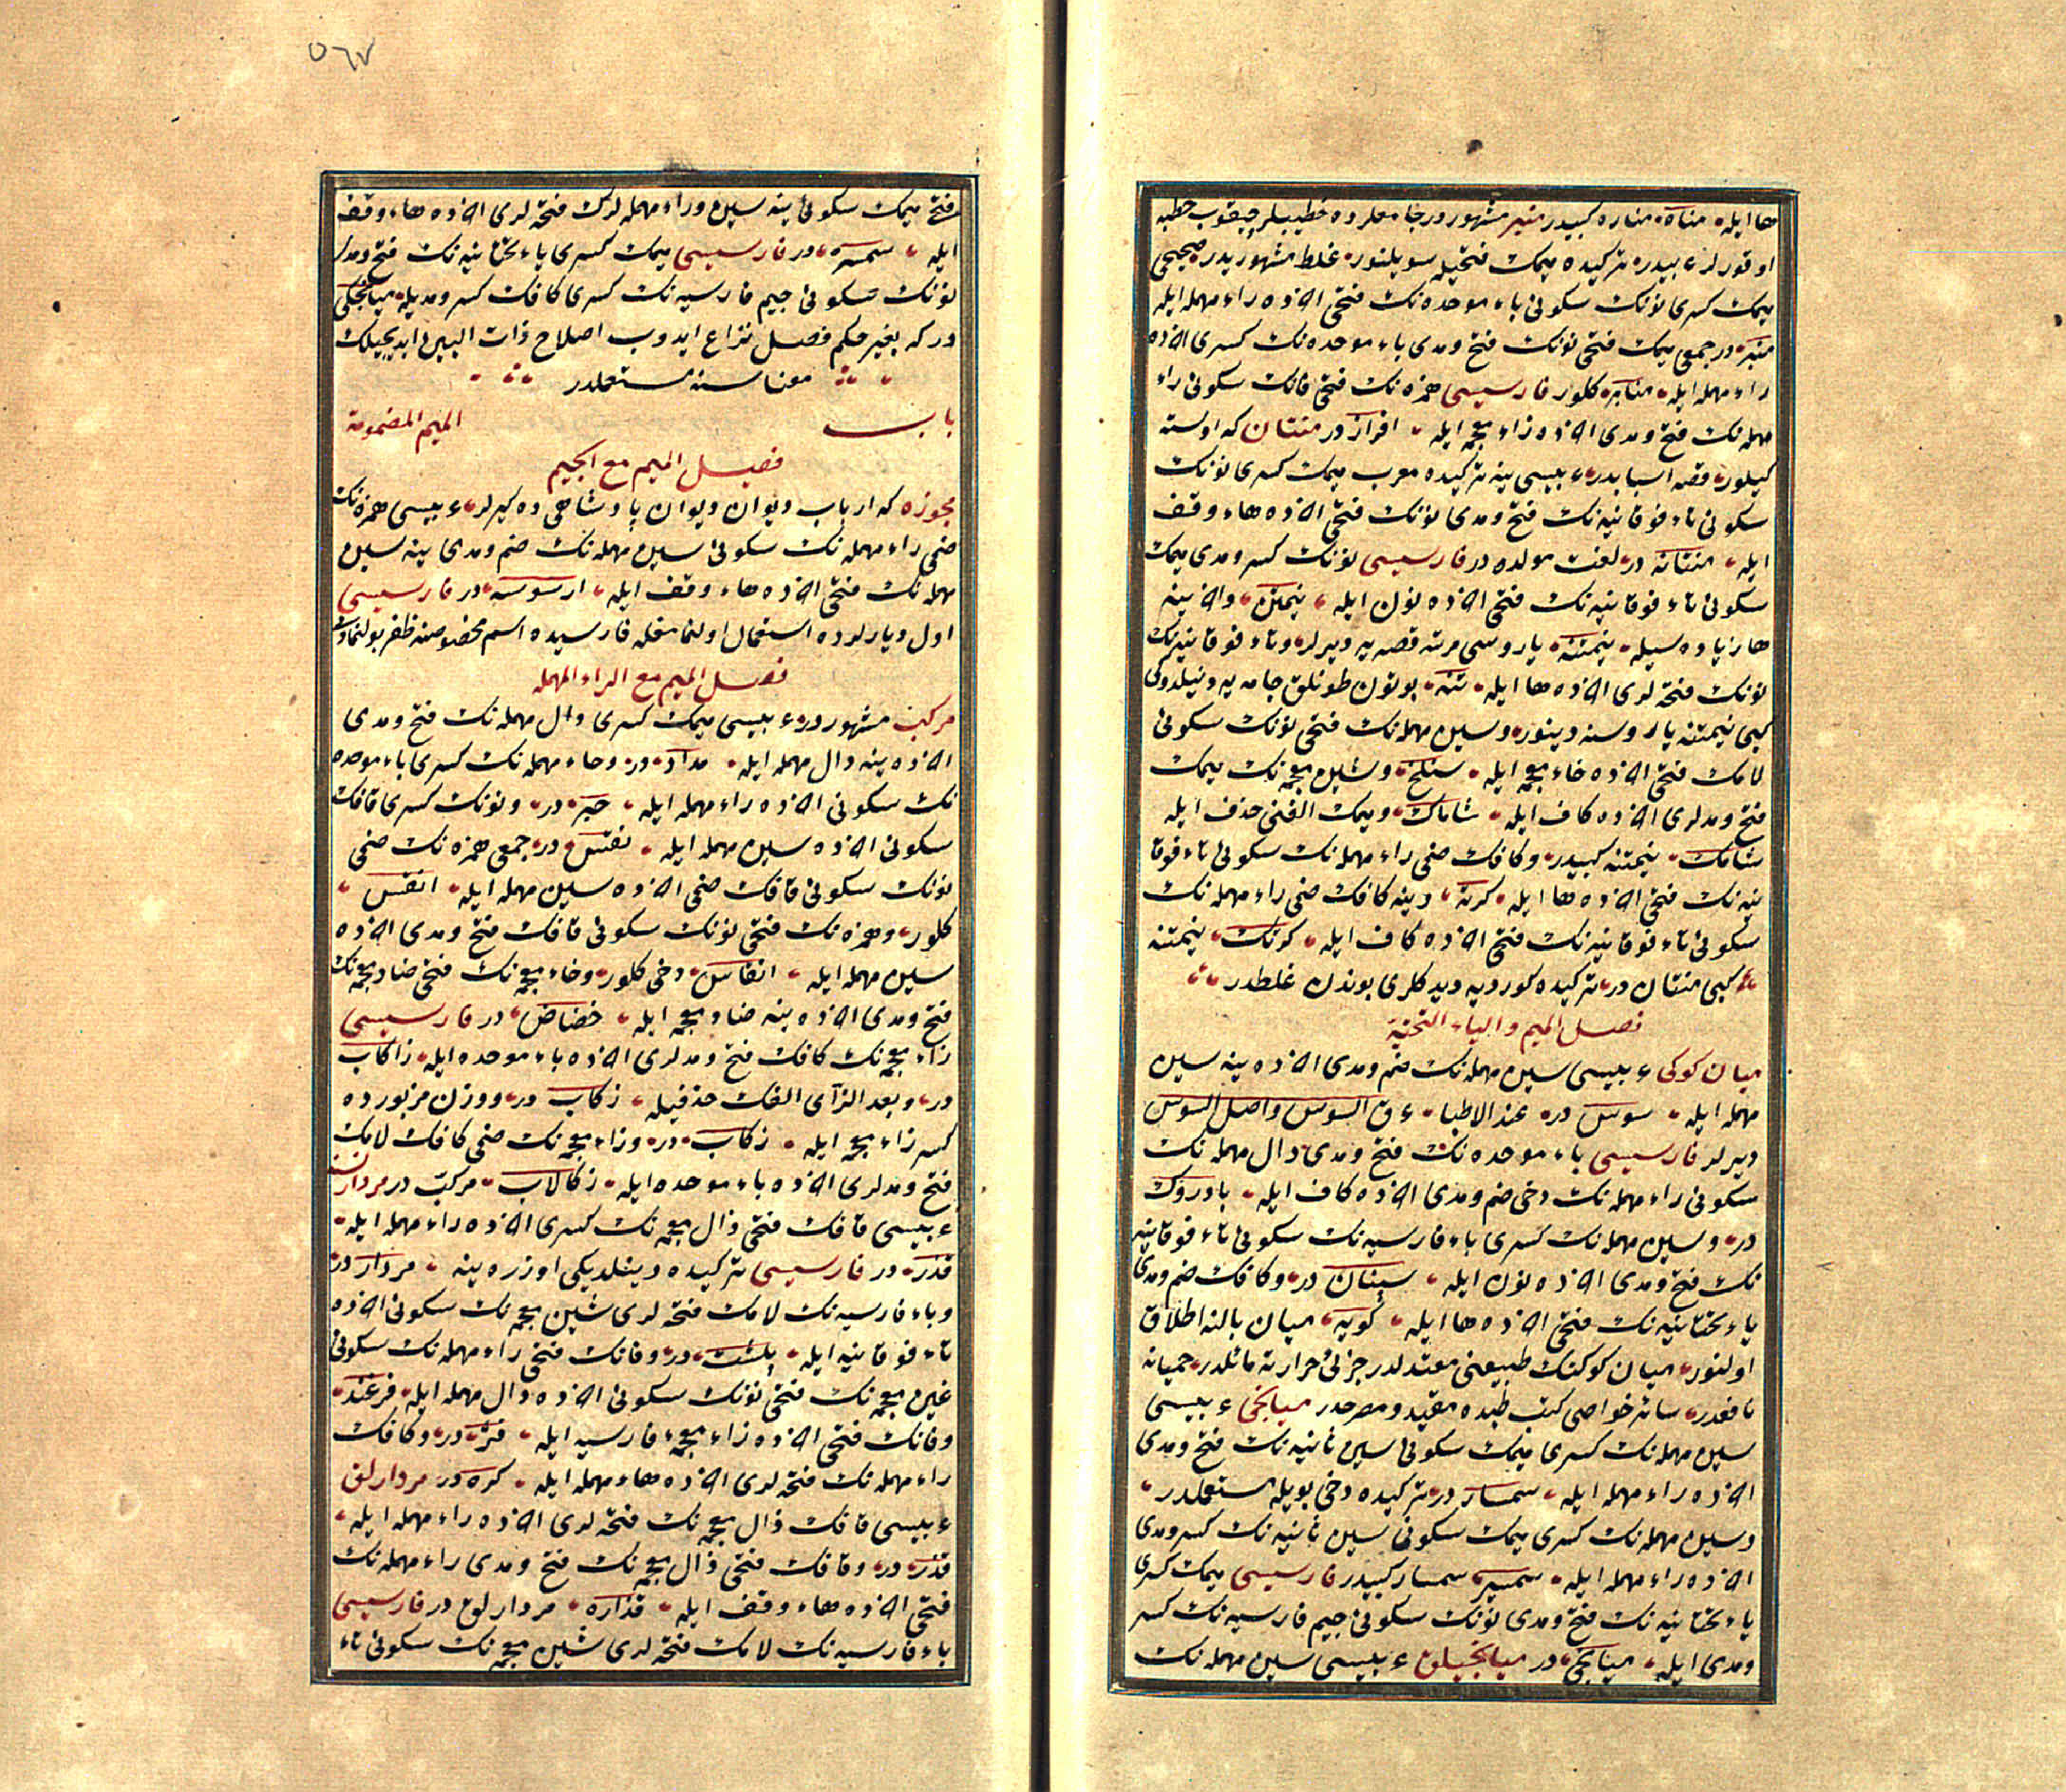 ها ايله منارة مناره كبيدر منبر مشهور در جامعلرده خطيبلر چيقوب خطبه
اوقورلر عربيدر تركيده ميمك فتحيله سويلنور غلط مشهوريدر صحيحى
ميمك كسرى نونك سكونى باء موحده نك فتحى آخرده راء مهمله ايله
منبر در جمعى ميمك فتحى نونك فتح ومدى باء موحده نك كسرى آخرده
راء مهمله ايله منابر كلور فارسيسى همزه نك فتحى فانك سكونى راء
مهمله نك فتح ومدى آخرده زاء معجمه ايله افراز در منتان كه اوسته
كيلور قصه اسبابدر عربيسى ينه تركيده معرب ميمك كسرى نونك
سكونى تاء فوقانيه نك فتح ومدى نونك فتحى آخرده هاء وقف
ايله منتانه در لغت مولده در فارسيسى نونك كسر ومدى ميمك
سكونى تاء فوقانيه نك فتحى آخرده نون ايله نيمتن وآخرينه
ها زياده سيله نيمتنه ياروسى مرتبه قصه يه ديرلر وتاء فوقانيه نك
نونك فتحه لرى آخرده ها ايله تنه بوتون طونلق جامه يه دينلدوكى
كبى نيمتنه ياروسنه دينور وسين مهمله نك فتحى نونك سكونى
لامك فتحى آخرده خاء معجمه ايله سنلخ وشين معجمه نك ميمك
فتح ومدلرى آخرده كاف ايله شاماك وميمك الفنى حذف ايله
شامك نيمتنه كبيدر وكافك ضمى راء مهمله نك سكونى تاء فوقا
نيه نك فتحى آخرده ها ايله كرته وينه كافك ضمى راء مهمله نك
سكونى تاء فوقانيه نك فتحى آخرده كاف ايله كرتك نيمتنه
كبى منتان در تركيده كورديه ديدكلرى بوندن غلطدر
فصل الميم والياء التحتية
ميان كوكى عربيسى سين مهمله نك ضم ومدى آخرده ينه سين
مهمله ايله سوس در عند الاطبا عرق السوس واصل السوس
ديرلر فارسيسى باء موحده نك فتح ومدى دال مهمله نك
سكونى راء مهمله نك دخى ضم ومدى آخرده كاف ايله بادروك
در وسين مهمله نك كسرى باء فارسيه نك سكونى تاء فوقانيه
نك فتح ومدى آخرده نون ايله سپتان در وكافك ضم ومدى
ياء تحتانيه نك فتحى آخرده ها ايله كويه ميان بالنه اطلاق
اولنور ميان كوكنك طبيعتى معتدلدر جزئى حرارته مائلدر حميانه
نافعدر سائر خواصى كتب طبده مقيد ومصرحدر ميانجى عربيسى
سين مهمله نك كسرى ميمك سكونى سين ثانيه نك فتح ومدى
آخرده راء مهمله ايله سمسار در تركيده دخى بويله مستعملدر
وسين مهمله نك كسرى ميمك سكونى سين ثانيه نك كسر ومدى
آخرده راء مهمله ايله سمسير سمسار كبيدر فارسيسى ميمك كسرى
ياء تحتانيه نك فتح ومدى نونك سكونى جيم فارسيه نك كسر
ومدى ايله ميانجى در ميانجيلق عربيسى سين مهمله نك
٥٦٧
فتحى ميمك سكونى ينه سين وراء مهمله لرك فتحه لرى آخرده هاء وقف
ايله سمسره در فارسيسى ميمك كسرى ياء تحتانيه نك فتح ومدى
نونك سكونى جيم فارسيه نك كسرى كافك كسر ومديله ميانجكى
در كه بغير حكم فصل نزاع ايدوب اصلاح ذات البين ايديجيلك
معناسنه مستعملدر
باب الميم المضمومة
فصل الميم مع الجيم
مجوزه كه ارباب ديوان ديوان پادشاهى ده كيرلر عربيسى همزه نك
ضمى راء مهمله نك سكونى سين مهمله نك ضم ومدى ينه سين
مهمله نك فتحى آخرده هاء وقف ايله ارسوسه در فارسيسى
اول ديارلرده استعمال اولنمامغله فارسيده اسم مخصوصنه ظفر بولنمادى
فصل الميم مع الراء المهمله
مركب مشهور در عربيسى ميمك كسرى دال مهمله نك فتح ومدى
آخرده ينه دال مهمله ايله مداد در وحاء مهمله نك كسرى باء موحده
نك سكونى آخرده راء مهمله ايله حبر در ونونك كسرى قافك
سكونى آخرده سين مهمله ايله نقس در جمعى همزه نك ضمى
نونك سكونى قافك ضمى آخرده سين مهمله ايله انقس
كلور وهمزه نك فتحى نونك سكونى قافك فتح ومدى آخرده
سين مهمله ايله انقاس دخى كلور وخاء معجمه نك فتحى ضاد معجمه نك
فتح ومدى آخرده ينه ضاد معجمه ايله خضاض در فارسيسى
زاء معجمه نك كافك فتح ومدلرى آخرده باء موحده ايله زاكاب
در وبعد الزاى الفك حذفيله زكاب در ووزن مزبورده
كسر زاء معجمه ايله زكاب در وزاء معجمه نك ضمى كافك لامك
فتح ومدلرى آخرده باء موحده ايله زكالاب مركب در مردار
عربيسى قافك فتحى ذال معجمه نك كسرى آخرده راء مهمله ايله
قذر در فارسيسى تركيده دينلديكى اوزره ينه مردار در
وباء فارسيه نك لامك فتحه لرى شين معجمه نك سكونى آخرده
تاء فوقانيه ايله پلشت در وفانك فتحى راء مهمله نك سكونى
غين معجمه نك فتحى نونك سكونى آخرده دال مهمله ايله فرغند
وفانك فتحى آخرده زاء معجمه فارسيه ايله فژ در وكافك
راء مهمله نك فتحه لرى آخرده هاء مهمله ايله كره در مردارلق
عربيسى قافك ذال معجمه نك فتحه لرى آخرده راء مهمله ايله
قذر در وقافك فتحى ذال معجمه نك فتح ومدى راء مهمله نك
فتحى آخرده هاء وقف ايله قذاره مردارلق در فارسيسى
باء فارسيه نك لامك فتحه لرى شين معجمه نك سكونى تاء